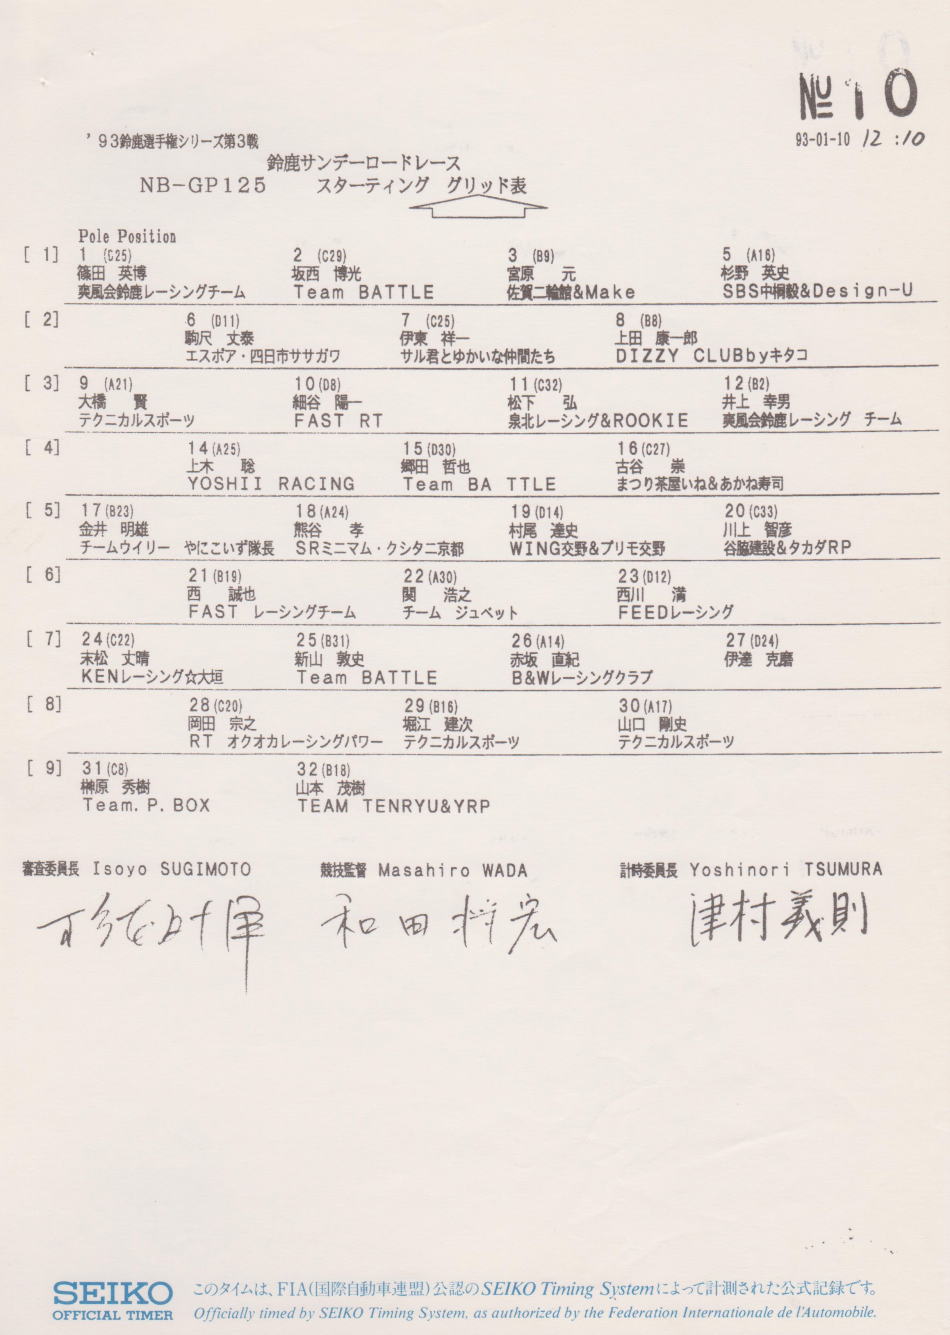 № 10
93-01-10 12:10
'93鈴鹿選手権シリーズ第3戦
鈴鹿サンデーロードレース
NB-GP125 スターティング グリッド表
Pole Position
[ 1] 1 (C25) 2 (C29) 3 (B9) 5 (A16)
篠田 英博 坂西 博光 宮原 元 杉野 英史
爽風会鈴鹿レーシングチーム Team BATTLE 佐賀二輪館&Make SBS中桐毅&Design-U
[ 2] 6 (D11) 7 (C25) 8 (B8)
駒尺 丈泰 伊東 祥一 上田 康一郎
エスポア・四日市ササガワ サル君とゆかいな仲間たち DIZZY CLUBbyキタコ
[ 3] 9 (A21) 10(D8) 11(C32) 12(B2)
大橋 賢 細谷 陽一 松下 弘 井上 幸男
テクニカルスポーツ FAST RT 泉北レーシング&ROOKIE 爽風会鈴鹿レーシング チーム
[ 4] 14(A25) 15(D30) 16(C27)
上木 聡 郷田 哲也 古谷 崇
YOSHII RACING Team BA TTLE まつり茶屋いね&あかね寿司
[ 5] 17(B23) 18(A24) 19(D14) 20(C33)
金井 明雄 熊谷 孝 村尾 達史 川上 智彦
チームウイリー やにこいず隊長 SRミニマム・クシタニ京都 WING交野&プリモ交野 谷脇建設&タカダRP
[ 6] 21(B19) 22(A30) 23(D12)
西 誠也 関 浩之 西川 満
FAST レーシングチーム チーム ジュベット FEEDレーシング
[ 7] 24(C22) 25(B31) 26(A14) 27(D24)
末松 丈晴 新山 敦史 赤坂 直紀 伊達 克磨
KENレーシング☆大垣 Team BATTLE B&Wレーシングクラブ
[ 8] 28(C20) 29(B16) 30(A17)
岡田 宗之 堀江 建次 山口 剛史
RT オクオカレーシングパワー テクニカルスポーツ テクニカルスポーツ
[ 9] 31(C8) 32(B18)
榊原 秀樹 山本 茂樹
Team. P. BOX TEAM TENRYU&YRP
審査委員長 Isoyo SUGIMOTO 競技監督 Masahiro WADA 計時委員長 Yoshinori TSUMURA
和田 将宏 津村義則
SEIKO このタイムは、FIA(国際自動車連盟)公認のSEIKO Timing Systemによって計測された公式記録です。
OFFICIAL TIMER Officially timed by SEIKO Timing System, as authorized by the Federation Internationale de l'Automobile.